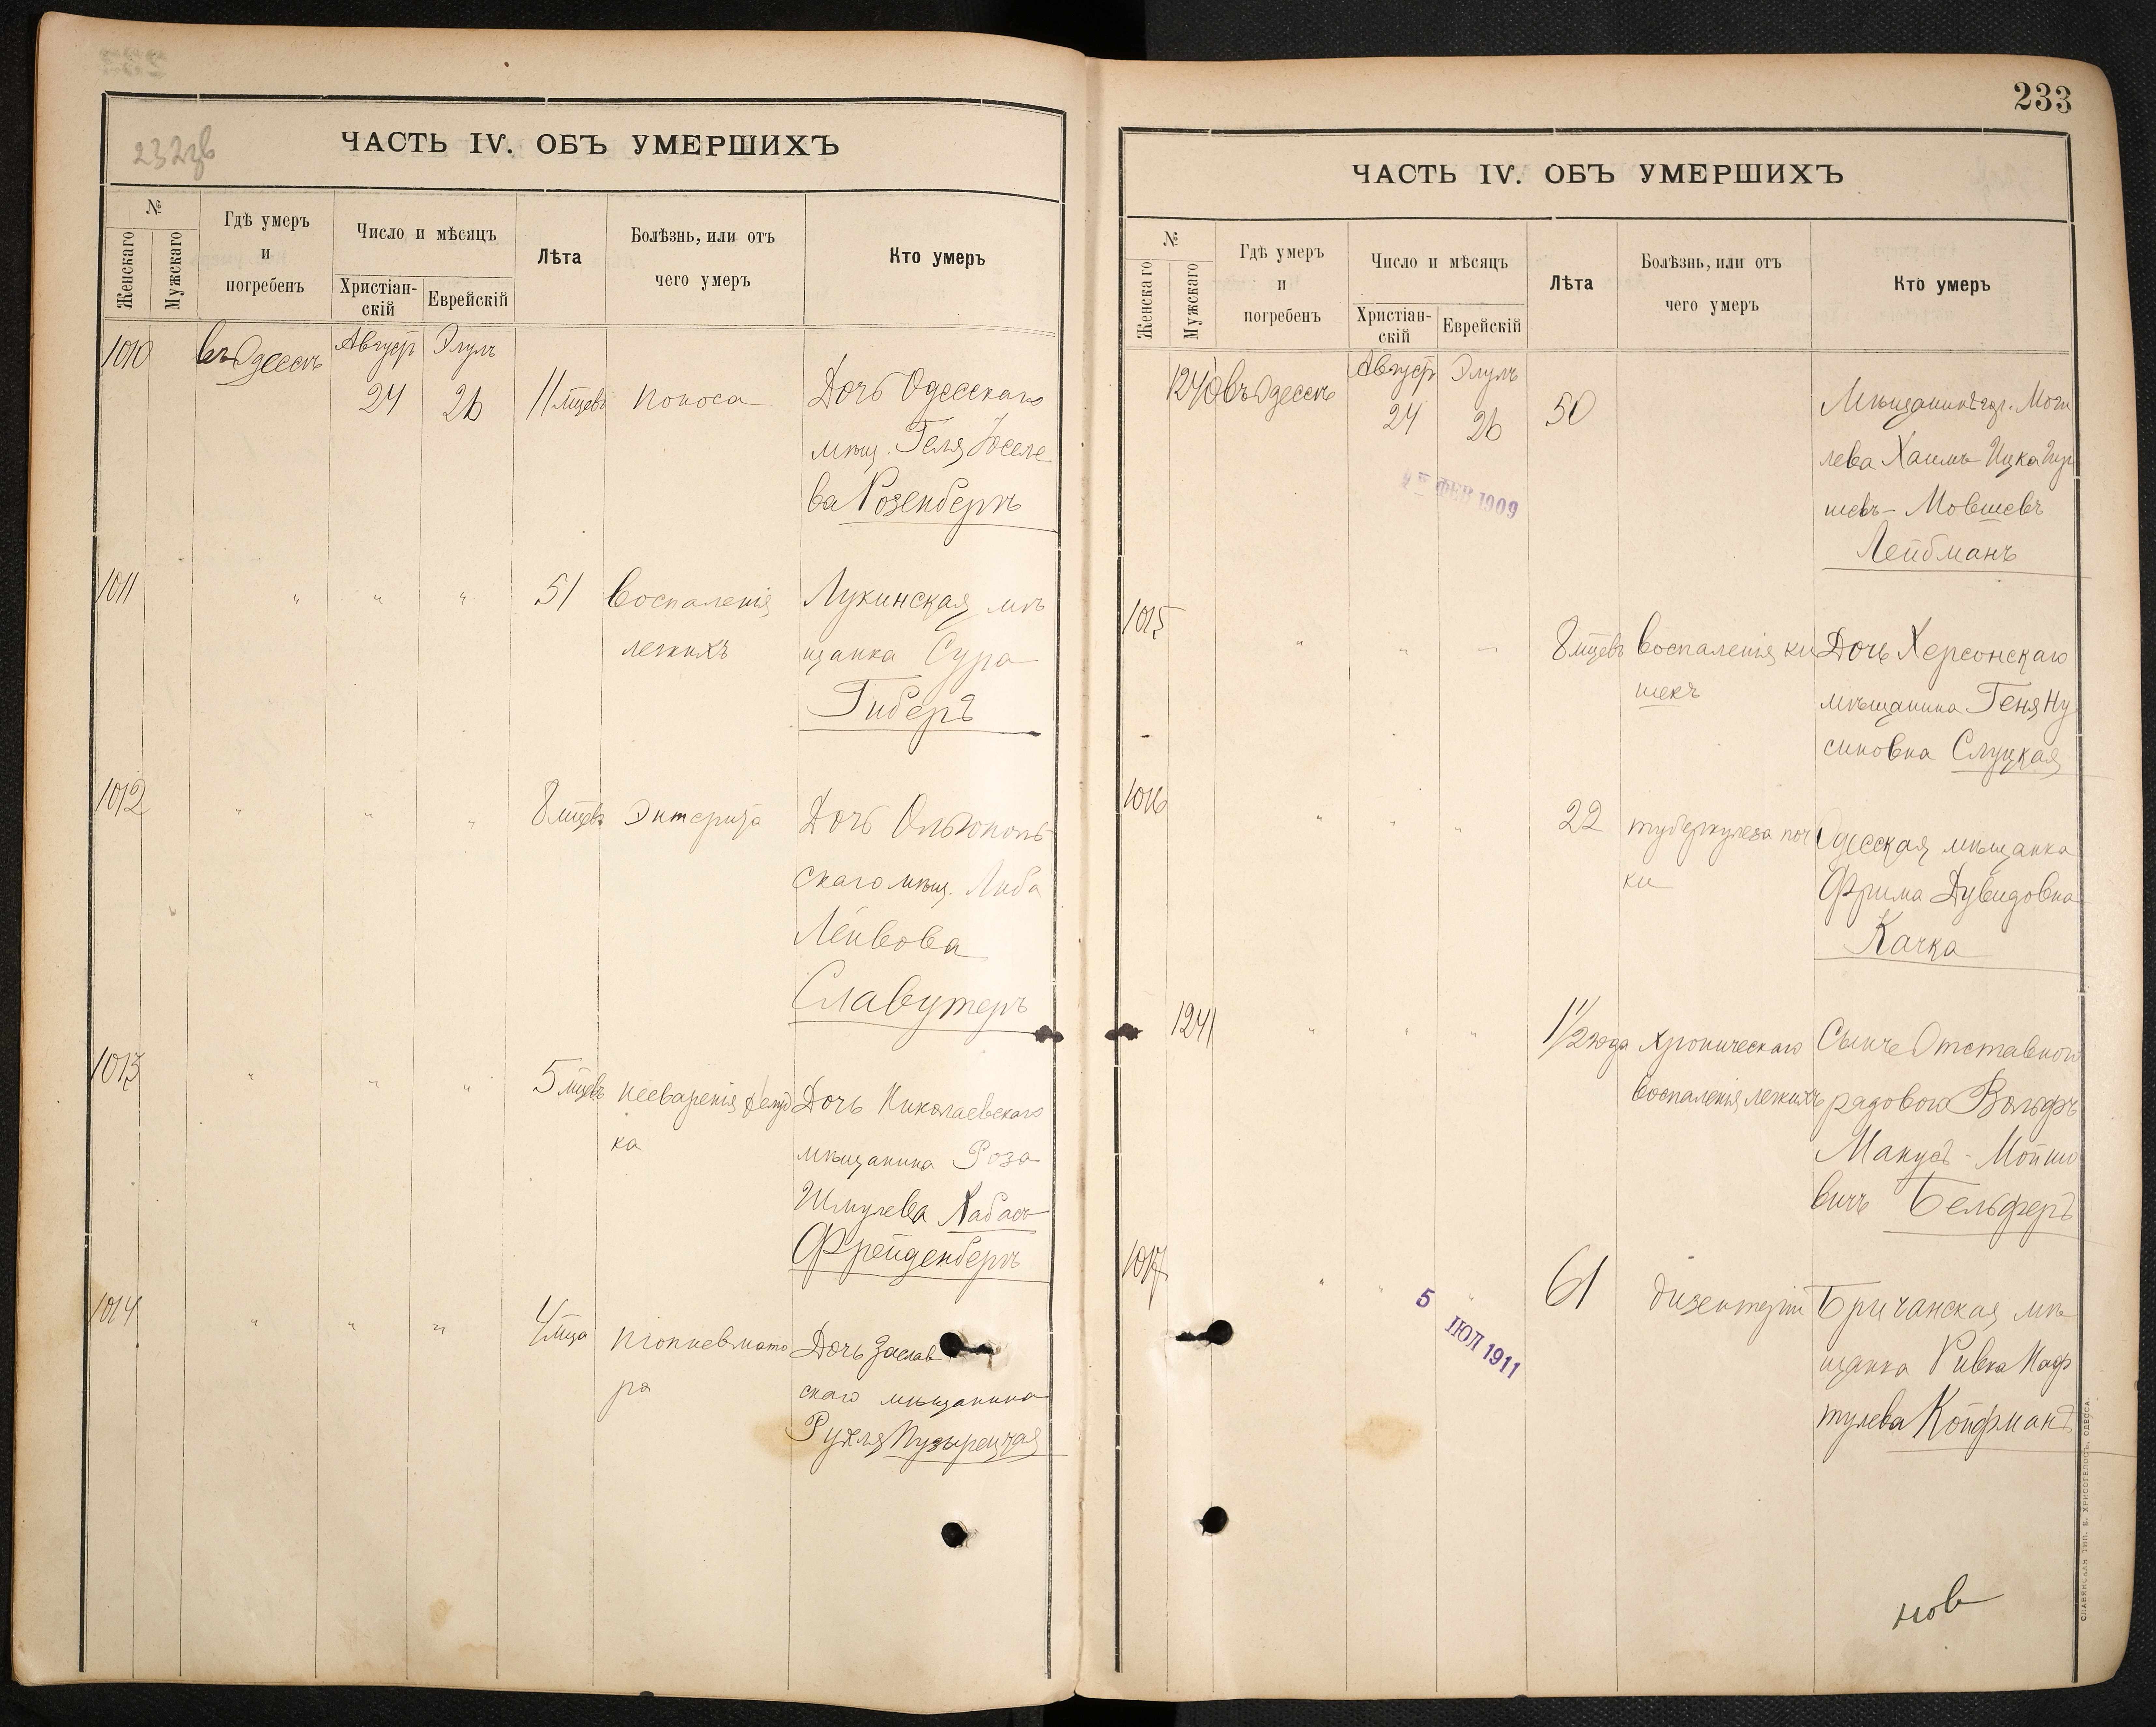 232об
ЧАСТЬ IV. ОБЪ УМЕРШИХЪ
№
Женскаго
Мужскаго
Гдѣ умеръ
и
погребенъ
Число и мѣсяцъ
Христіан-
скій
Еврейскій
Лѣта
Болѣзнь, или отъ
чего умеръ
Кто умеръ
1010 въ Одессѣ Август Элулъ
24 26 11 мцевъ поноса Дочь Одесскаго
мѣщ. Геля Іоселе
ва Розенбергъ
1011 " " " 51 Воспаленія Лукинская мѣ
легкихъ щанка Сура
Гиберъ
1012 " " " 8 мцевъ Энтерита Дочь Ольгополь
скаго мѣщ. Либа
Лейбова
Славутеръ
1013 " " " 5 мцевъ несваренія желуд Дочь Николаевскаго
ка мѣщанина Роза
Шмулева Хабасъ
Фрейденбергъ
1014 " " " 4 мца Дочь Заслав
ра скаго мѣщанина
Рухля Пузырецкая
233
ЧАСТЬ IV. ОБЪ УМЕРШИХЪ
№
Женскаго
Мужскаго
Гдѣ умеръ
и
погребенъ
Число и мѣсяцъ
Христіан-
скій
Еврейскій
Лѣта
Болѣзнь, или отъ
чего умеръ
Кто умеръ
1240 въ Одессѣ Август Элулъ
24 26 50 Мѣщанинъ гор. Моги
лева Хаимъ Ицка Гер
шевъ - Мовшевъ
Лейбманъ
ФЕВ 1909
1015 " " " 8 мцевъ воспаленія ки Дочь Херсонскаго
шекъ мѣщанина Геня Ну
синовна Слуцкая
1016 " " " 22 туберкулеза поч Одесская мѣщанка
ки Фрима Дувидовна
Качка
1241 " " " 1 1/2 года хроническаго Сынъ Отставного
воспаленія легкихъ рядового Вольфъ
Манусъ - Мойшо
вичъ Бельферъ
1017 " " " 61 дизентеріи Бричанская мѣ
щанка Ривка Наф
тулева Койфманъ
5 ІЮЛ 1911
нов
СЛАВЯНСКАЯ ТИП. Е. ХРИСОГЕЛОСЪ. ОДЕССА.